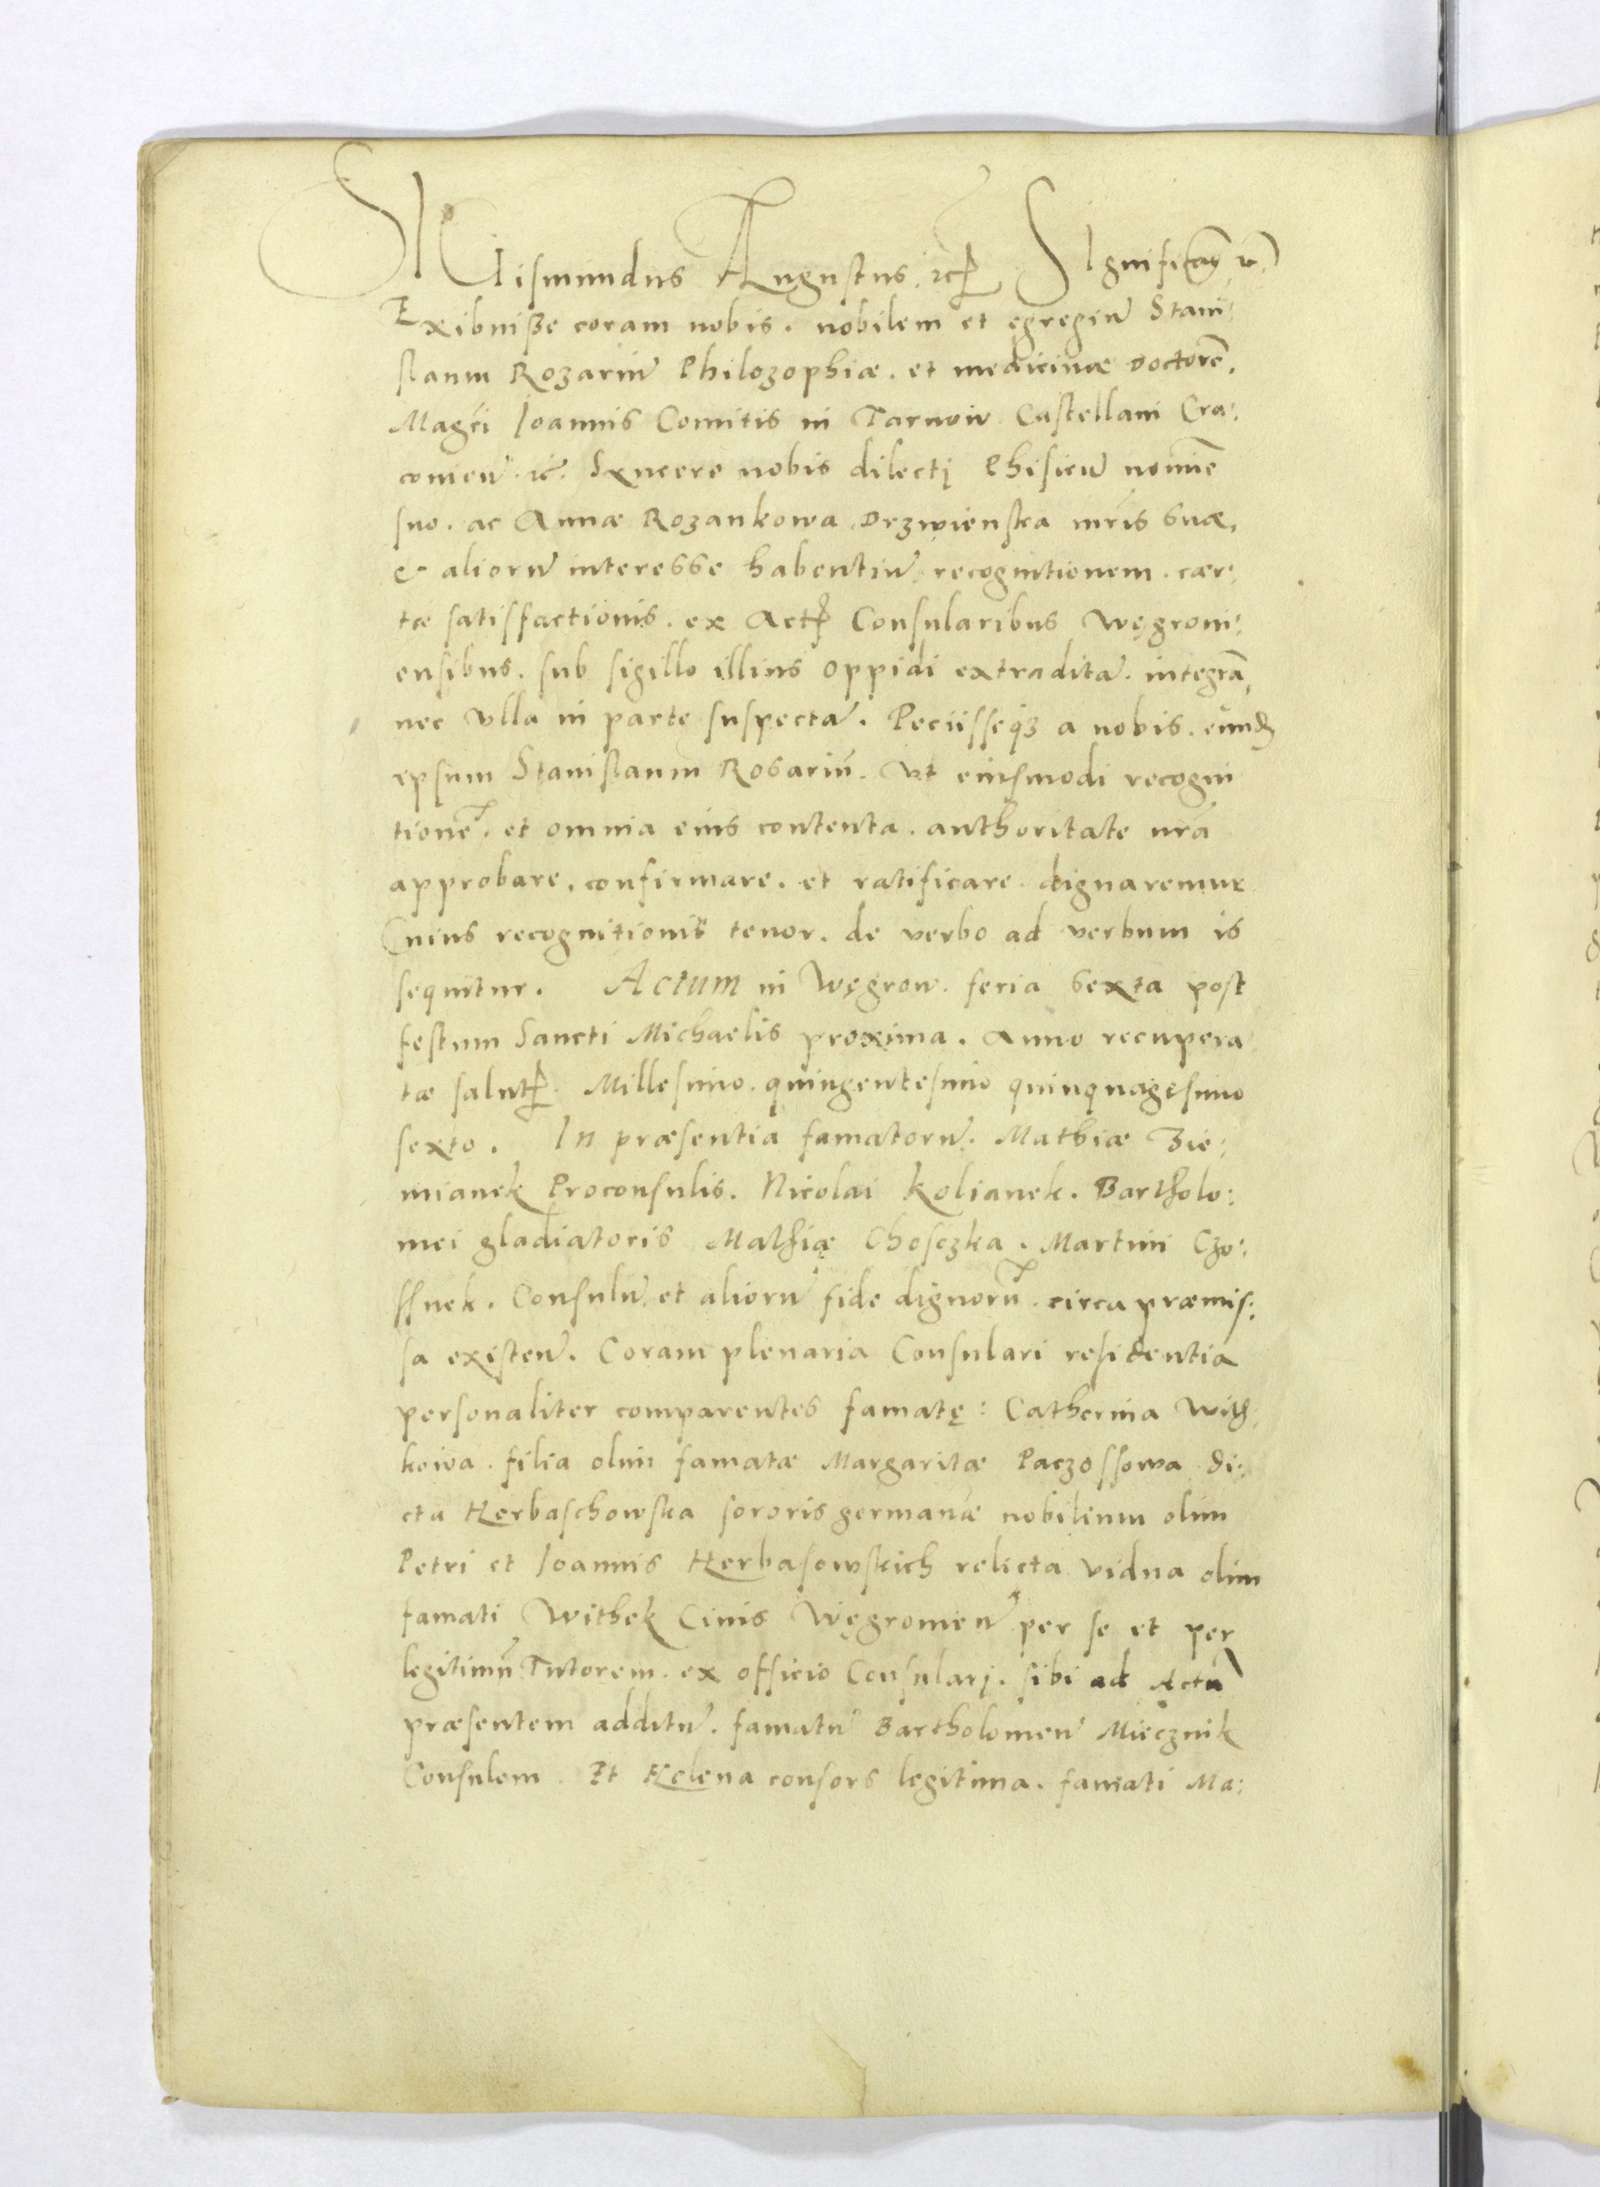 SIGismundus Augustus, etc. Significamus etc.
Exibuisse coram nobis. nobilem et egregiũ Stani:
slaum Rozariũ Philozophiæ. et medicinæ Doctorẽ.
Magci Joannis Comitis in Tarnow Castellani Cra:
comen̄. etc. Syncere nobis dilecti Phisicũ nomĩe
suo. ac Annæ Rozankowa Drzwienska mr̃is suæ,
& aliorũ interesse habentiũ recognitionem. cær:
tæ satisfactionis. ex Actis Consularibus Węgroni:
ensibus. sub sigillo illius oppidi extraditã. integrã,
nec vlla in parte suspectã. Peciisseqȝ a nobis. eund
epsum Stanislaum Rosariũ. Vt eiusmodi recogni
tionẽ. et omnia eius contenta. authoritate nr̃a
approbare, confirmare. et ratificare dignaremur
Cuius recognitionis tenor. de verbo ad verbum is
sequitur. Actum in Węgrow. feria sexta post
festum Sancti Michaelis proxima. Anno recupera
tæ salutis. Millesimo. quingentesimo quinquagesimo
sexto. In præsentia famatorũ. Mathiæ Zie:
mianek Proconsulis. Nicolai Kolianek. Bartholo:
mei gladiatoris Mathię Choseszka. Martini Czo:
ssnek. Consulũ et aliorũ fide dignorũ. circa præmis:
sa existen̄. Coram plenaria Consulari residentia
personaliter comparentes famatę: Catherina With
kowa. filia olim famatæ Margaritæ Paczossowa di:
cta Herbaschowska sororis germanæ nobilium olim
Petri et Joannis Herbasowskich relicta vidua olim
famati Withek Ciuis Węgromen̄ per se et per
legitimũ Tutorem. ex officio Consulari. sibi ad Actũ
præsentem additũ. famatũ Bartholomeũ Miecznik
Consulem. Et Helena consors legitima. famati Ma: